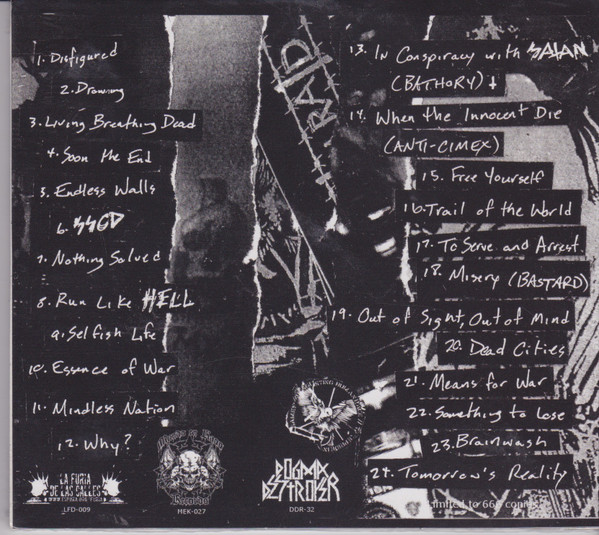 1. Disfigured
2. Drowning
3. Living Breathing Dead
4. Soon the End
5. Endless Walls
6. SSGD
7. Nothing Solved
8. Run Like HELL
9. Selfish Life
10. Essence of War
11. Mindless Nation
12. Why?
RAID
13. In Conspiracy with SATAN
(BATHORY)
14. When the Innocent Die
(ANTI-CIMEX)
15. Free Yourself
16. Trail of the World
17. To Serve and Arrest.
18. Misery (BASTARD)
19. Out of Sight, Out of Mind
20. Dead Cities
21. Means for War
22. Something to Lose
23. Brainwash
24. Tomorrow's Reality
LA FURIA
DE LAS CALLES
LFD-009
Records
MEK-027
DOGMA
DESTROYER
DDR-32
Limited to 666 copies